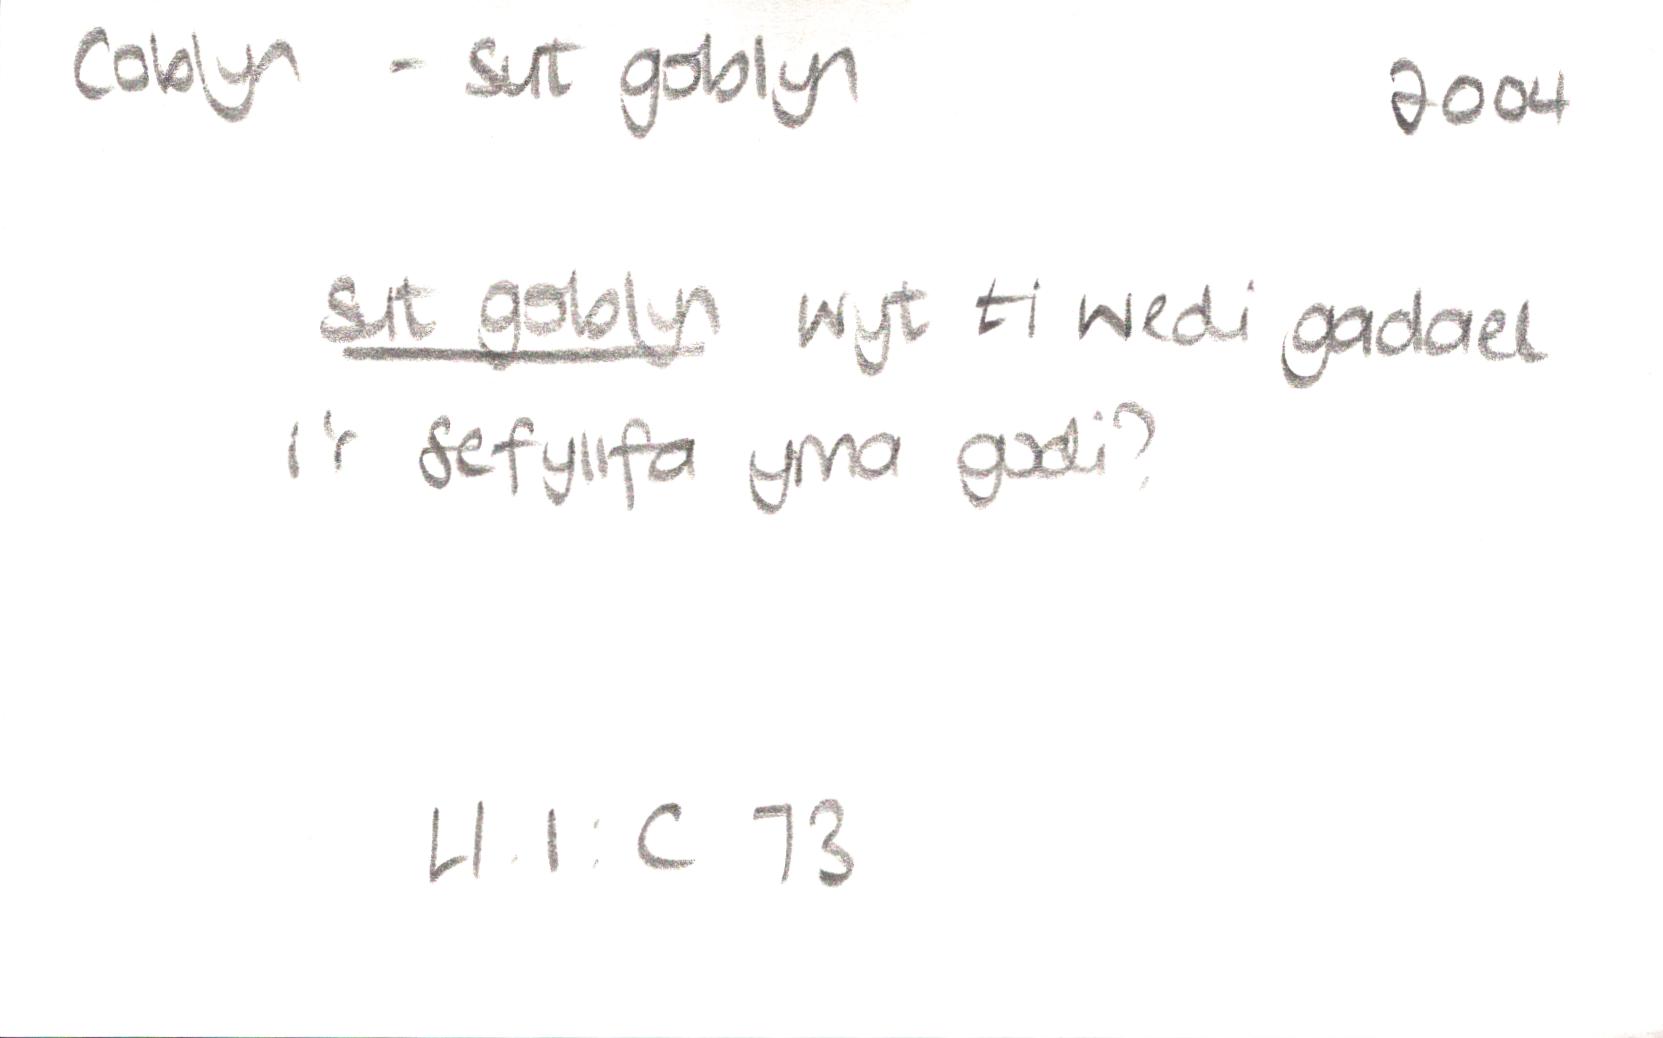 Coblyn - sut goblyn 2004
sut goblyn wyt ti wedi gadael
i'r sefyllfa yma godi?
Ll.I: C 73